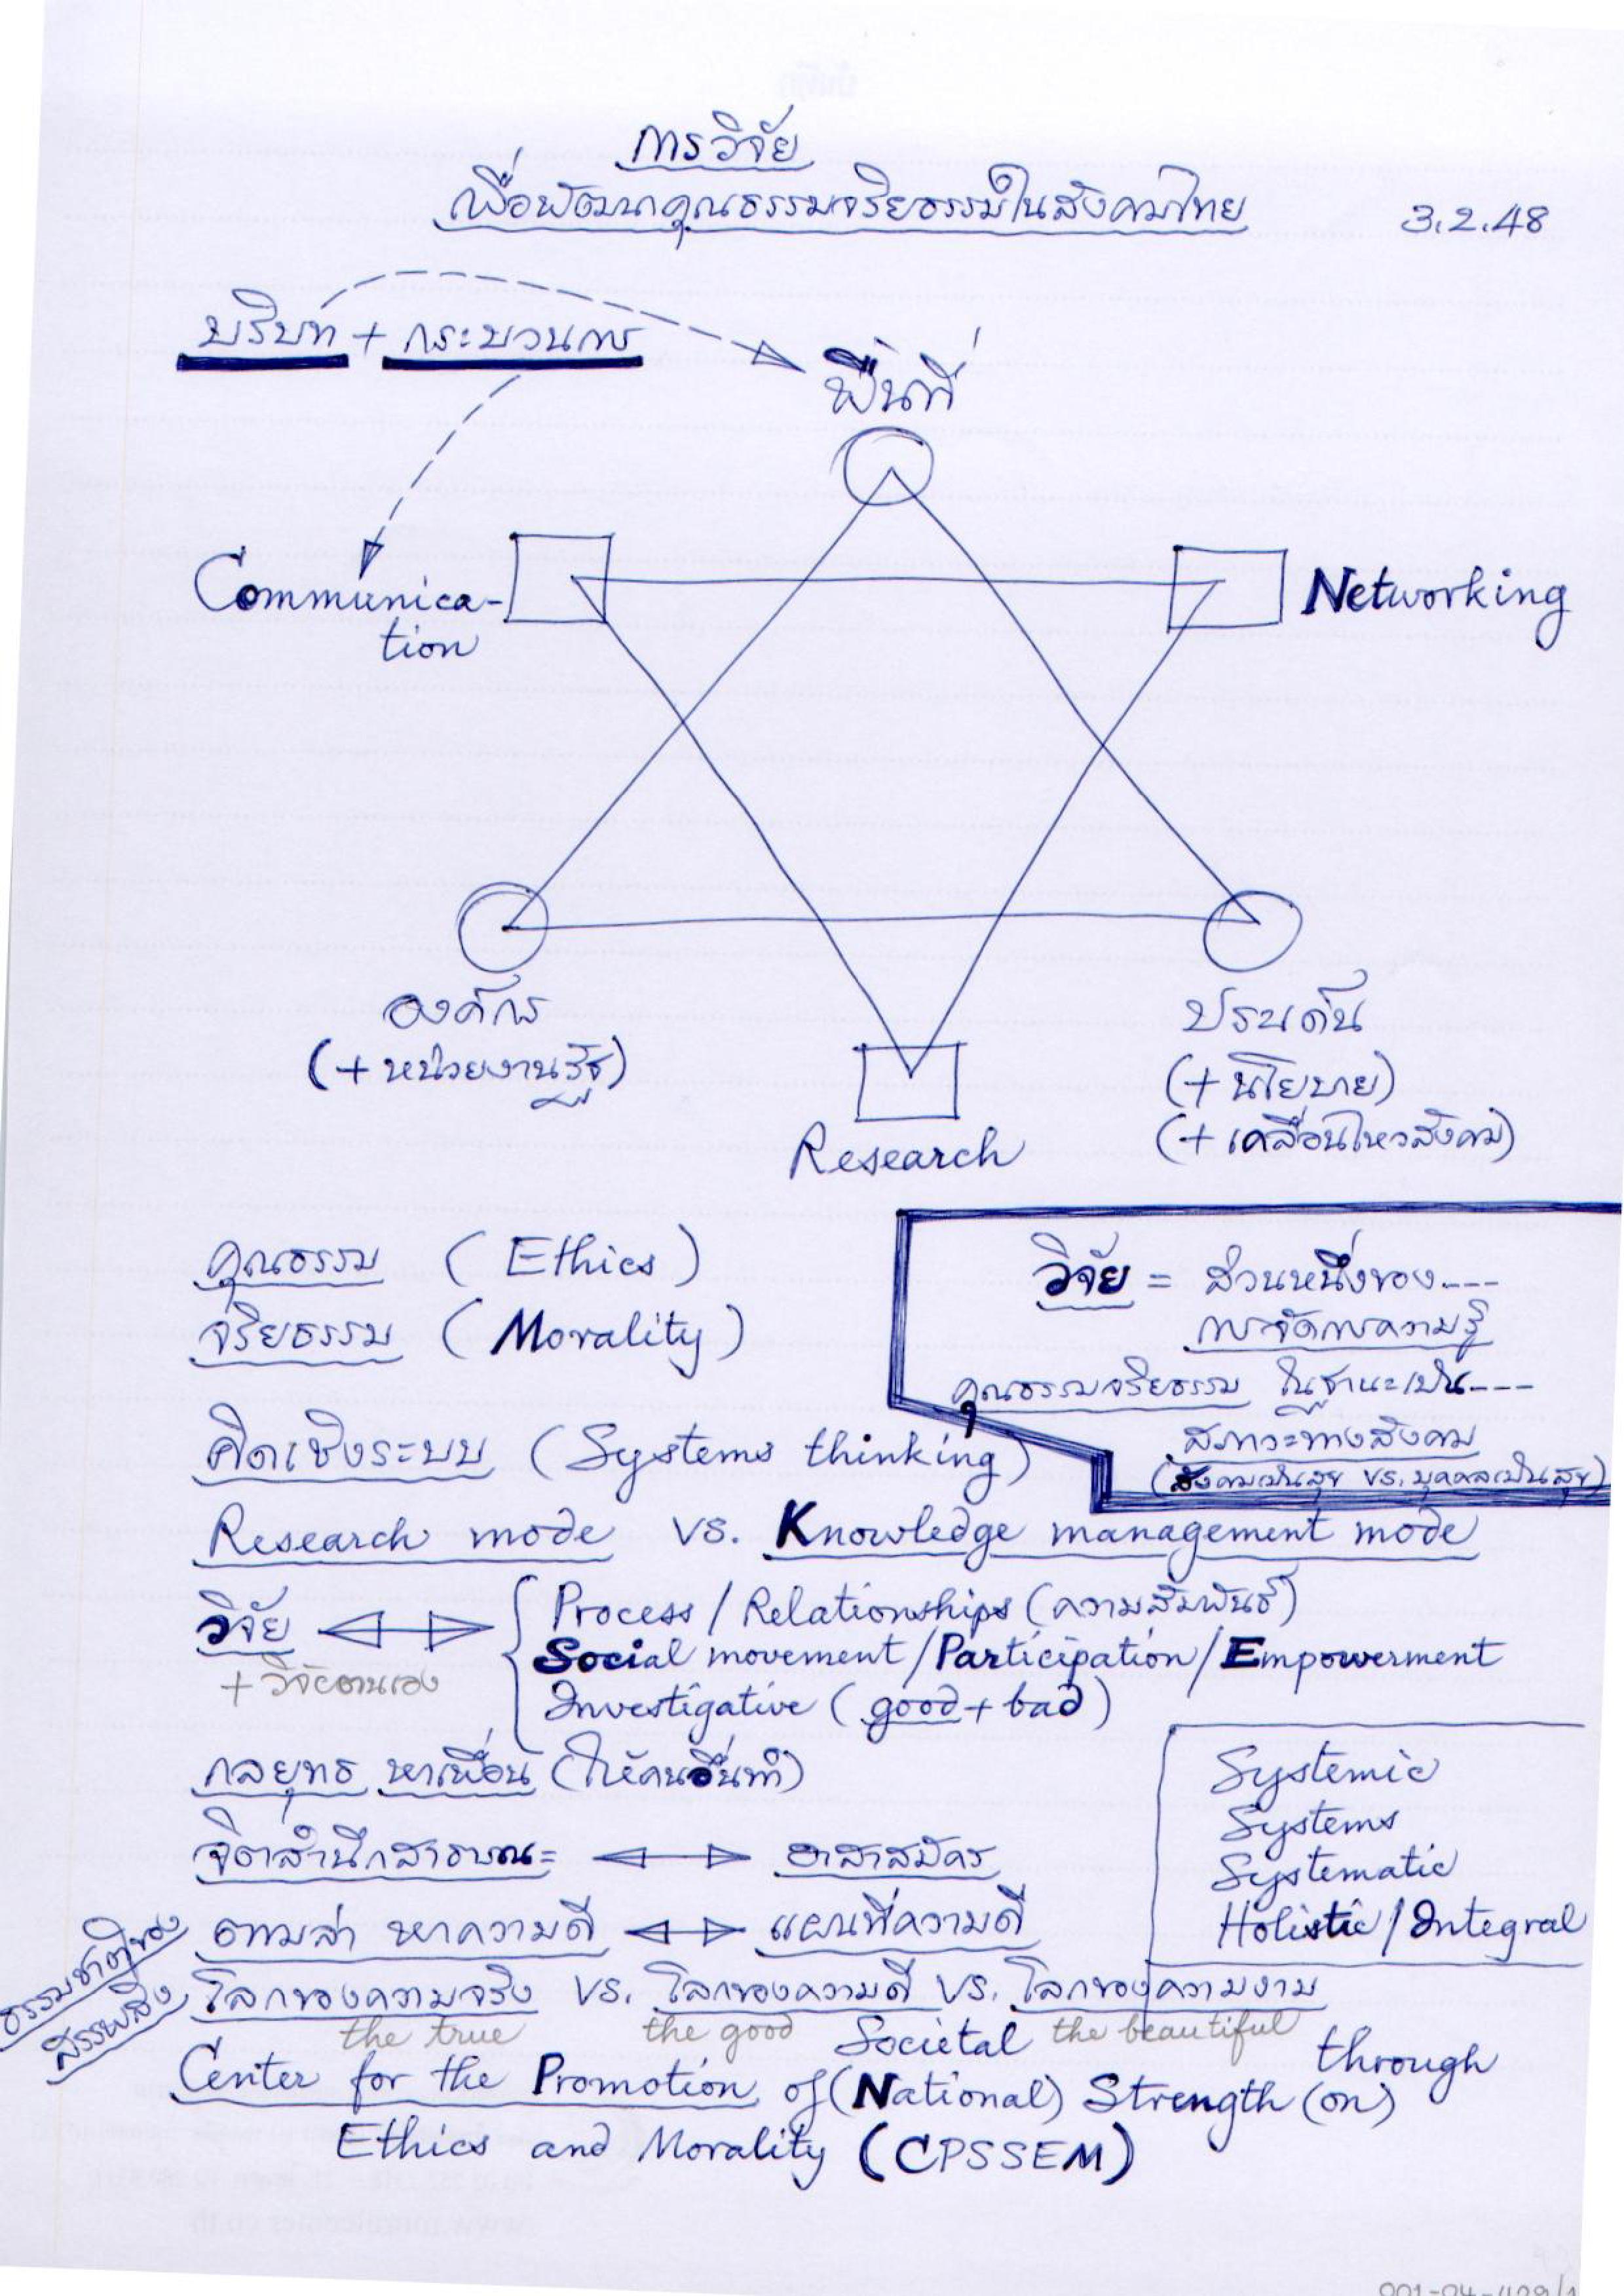 การวิจัย
เพื่อพัฒนาคุณธรรมจริยธรรมในสังคมไทย
3.2.48
บริบท + กระบวนการ
พื้นที่
Communica-
tion
Networking
องค์กร
(+ หน่วยงานรัฐ)
ประเด็น
(+ นโยบาย)
(+ เคลื่อนไหวสังคม)
Research
คุณธรรม (Ethics)
จริยธรรม (Morality)
วิจัย = ส่วนหนึ่งของ----
การจัดการความรู้
คุณธรรมจริยธรรม ในฐานะเป็น----
สภาวะทางสังคม
(สังคมเป็นสุข vs. บุคคลเป็นสุข)
คิดเชิงระบบ (Systems thinking)
Research mode vs. Knowledge management mode
วิจัย
+ วิจัยตนเอง
Process / Relationships (ความสัมพันธ์)
Social movement / Participation / Empowerment
Investigative (good + bad)
กลยุทธ หาเพื่อน (ให้คนอื่นทำ)
Systemic
Systems
Systematic
Holistic / Integral
จิตสำนึกสาธารณะ อาสาสมัคร
ตามล่า หาความดี แผนที่ความดี
ธรรมชาติของ
สรรพสิ่ง
โลกของความจริง vs. โลกของความดี vs. โลกของความงาม
the true the good the beautiful
Societal through
Center for the Promotion of (National) Strength (on)
Ethics and Morality (CPSSEM)